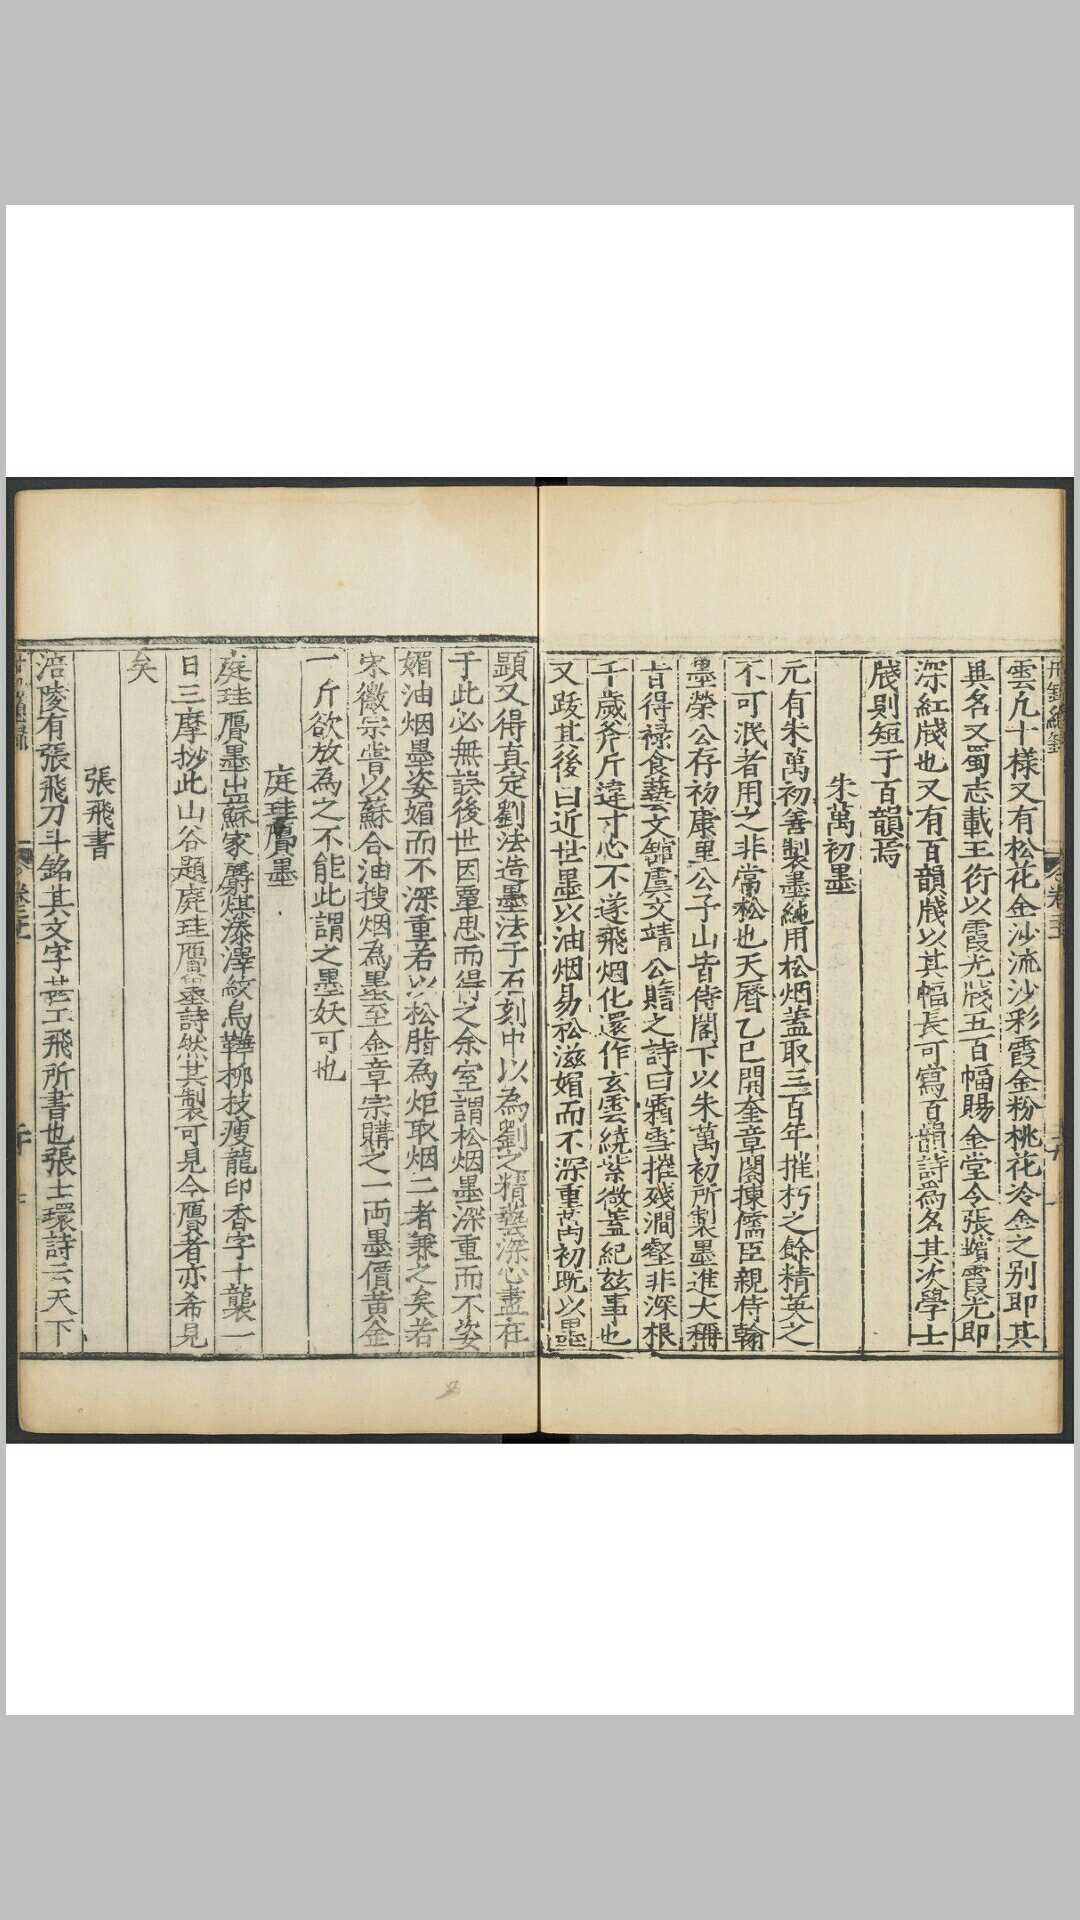 丹鉛續錄
雲凡十様又有松花金沙流沙彩霞金粉桃花冷金之别即其
異名又蜀志載王衍以霞光牋五百幅賜金堂令張蠙霞光即
深紅牋也又有百韻牋以其幅長可寫百韻詩爲名其次學士
牋則短于百韻焉
朱萬初墨
元有朱萬初善製墨純用松烟蓋取三百年摧朽之餘精英之
不可泯者用之非常松也天曆乙巳開奎章閣揀儒臣親侍翰
墨榮公存初康里公子山皆侍閣下以朱萬初所製墨進大稱
旨得祿食藝文館虞文靖公贈之詩曰霜雪摧殘澗壑非深根
千歲斧斤違寸心不逐飛烟化還作玄雲繞紫微蓋紀玆事也
又跋其後曰近世墨以油烟易松滋媚而不深重萬初既以墨
顯又得真定劉法造墨法于石刻中以為劉之精藝深心盡在
于此必無誤後世因覃思而得之余嘗謂松烟墨深重而不姿
媚油烟墨姿媚而不深重若以松脂為炬取烟二者兼之矣若
宋徽宗嘗以蘇合油搜烟為墨至金章宗購之一両墨價黄金
一斤欲放為之不能此謂之墨妖可也
庭珪贋墨
庭珪贋墨出蘇家麝煤添澤紋烏鞾栁枝瘦龍印香字十襲一
日三摩挱此山谷題庭珪贋墨詩然其製可見今贋者亦希見
矣
張飛書
涪陵有張飛刀斗銘其文字甚工飛所書也張士環詩云天下